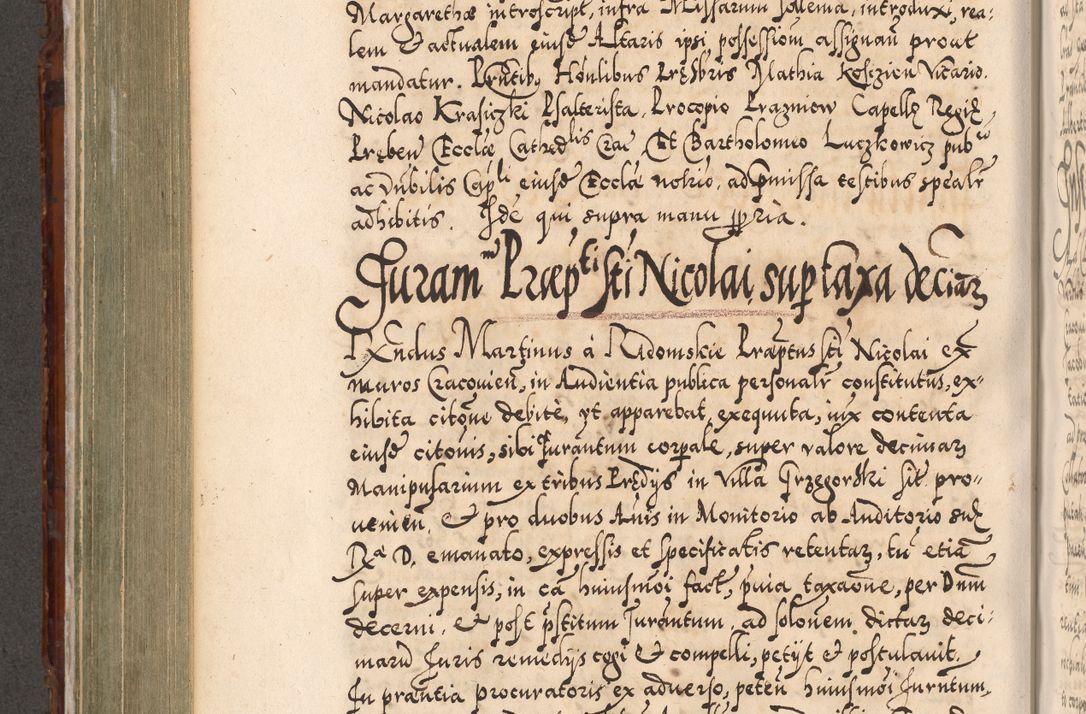 Margarethæ introscript, infra Missarum solemia, introduxi, rea-
lem & actualem eiusd Altaris ipsi possessiom assignau prout
mandatur. Pntib, Honlibus Prsbris Mathia Kosczien Vicario.
Nicolao Krasiczki Psalterista, Procopio Prazniow Capellę Regię
Prebeń Ecclæ Cathedlis Crac Et Bartholomeo Luczkowicz pubco
ac Vnbilis Capli eiusd Eccla notrio, ad pmissa testibus spealr
adhibitis. Ide qui supra manu ppria.
Juram Præpti sti Nicolai sup taxa decimar
Vendus Martinus à Radomskie Præptus sti Nicolai ex
muros Cracovień, in Audientia publica personalr constitutus, ex-
hibita citone debite, vt apparebat, exequuta, iux contenta
eiusd citonis, sibi Jurantum corpale, super valore decimar
Manipularium ex tribus Prędijs in Villa Grzegorski sit pro-
uenień, & pro duobus Anis in Monitorio ab Auditorio suę
Ra D. emanato, expressis et specificatis retentar, tu etia
super expensis, in ca huiusmoi fact, puia taxaone, per Dnm
decerni, & post pstitum Jurantum, ad solonem dictar deci-
mard Juris remedijs cogi & compelli, petijt & postulauit.
In prantia procuratoris ex aduerso, peteń huiusmoi Jurntum,